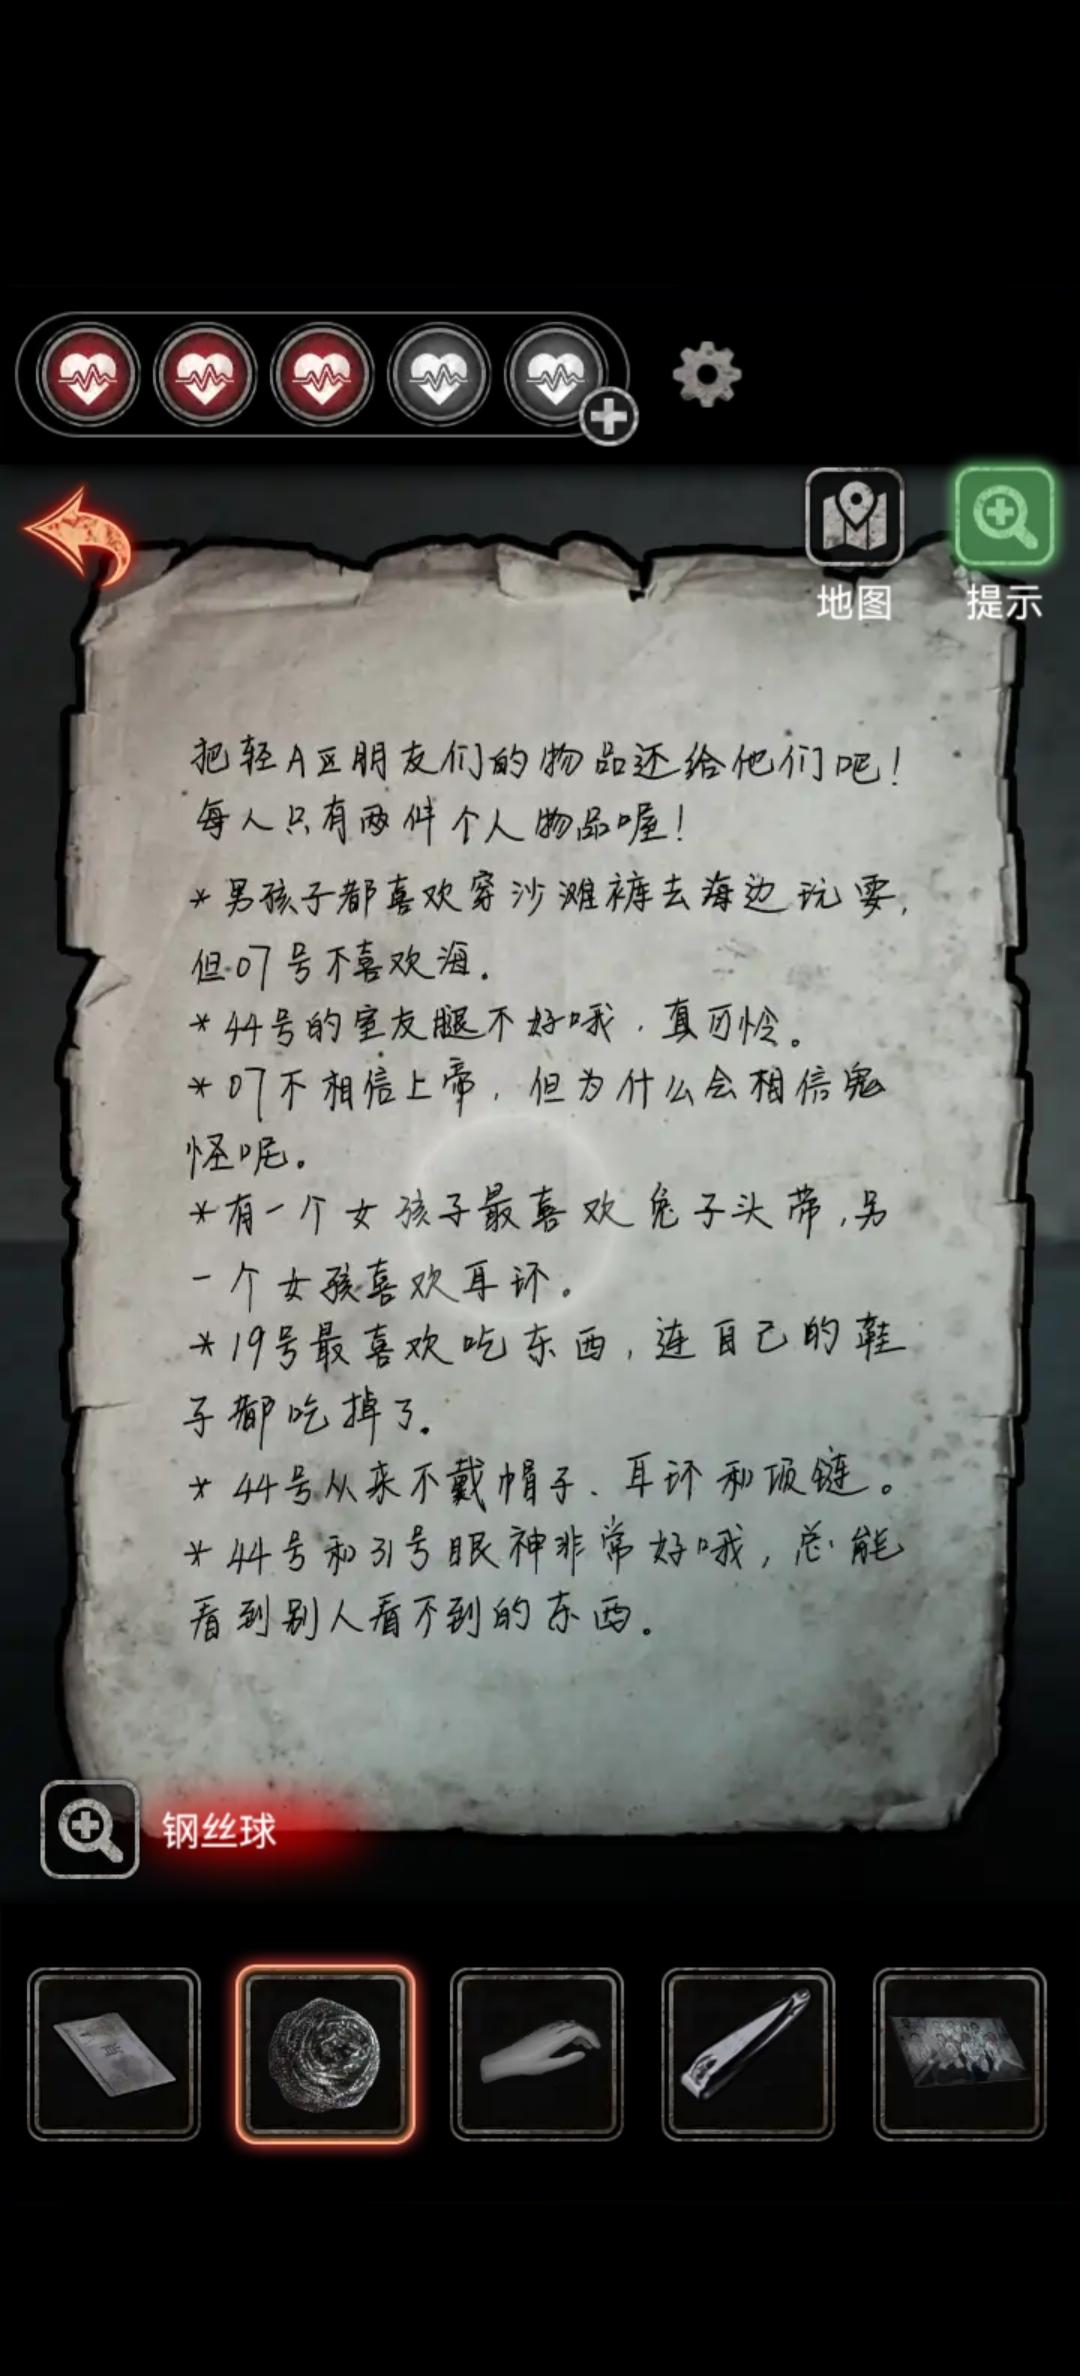 地图
提示
把轻A区朋友们的物品还给他们吧!
每人只有两件个人物品喔!
*男孩子都喜欢穿沙滩裤去海边玩耍,
但07号不喜欢海.
*44号的室友腿不好哦,真可怜。
*07不相信上帝,但为什么会相信鬼
怪呢。
*有一个女孩子最喜欢兔子头带,另
一个女孩喜欢耳环。
*19号最喜欢吃东西,连自己的鞋
子都吃掉了.
*44号从来不戴帽子、耳环和项链。
*44号和31号眼神非常好哦,总能
看到别人看不到的东西.
钢丝球